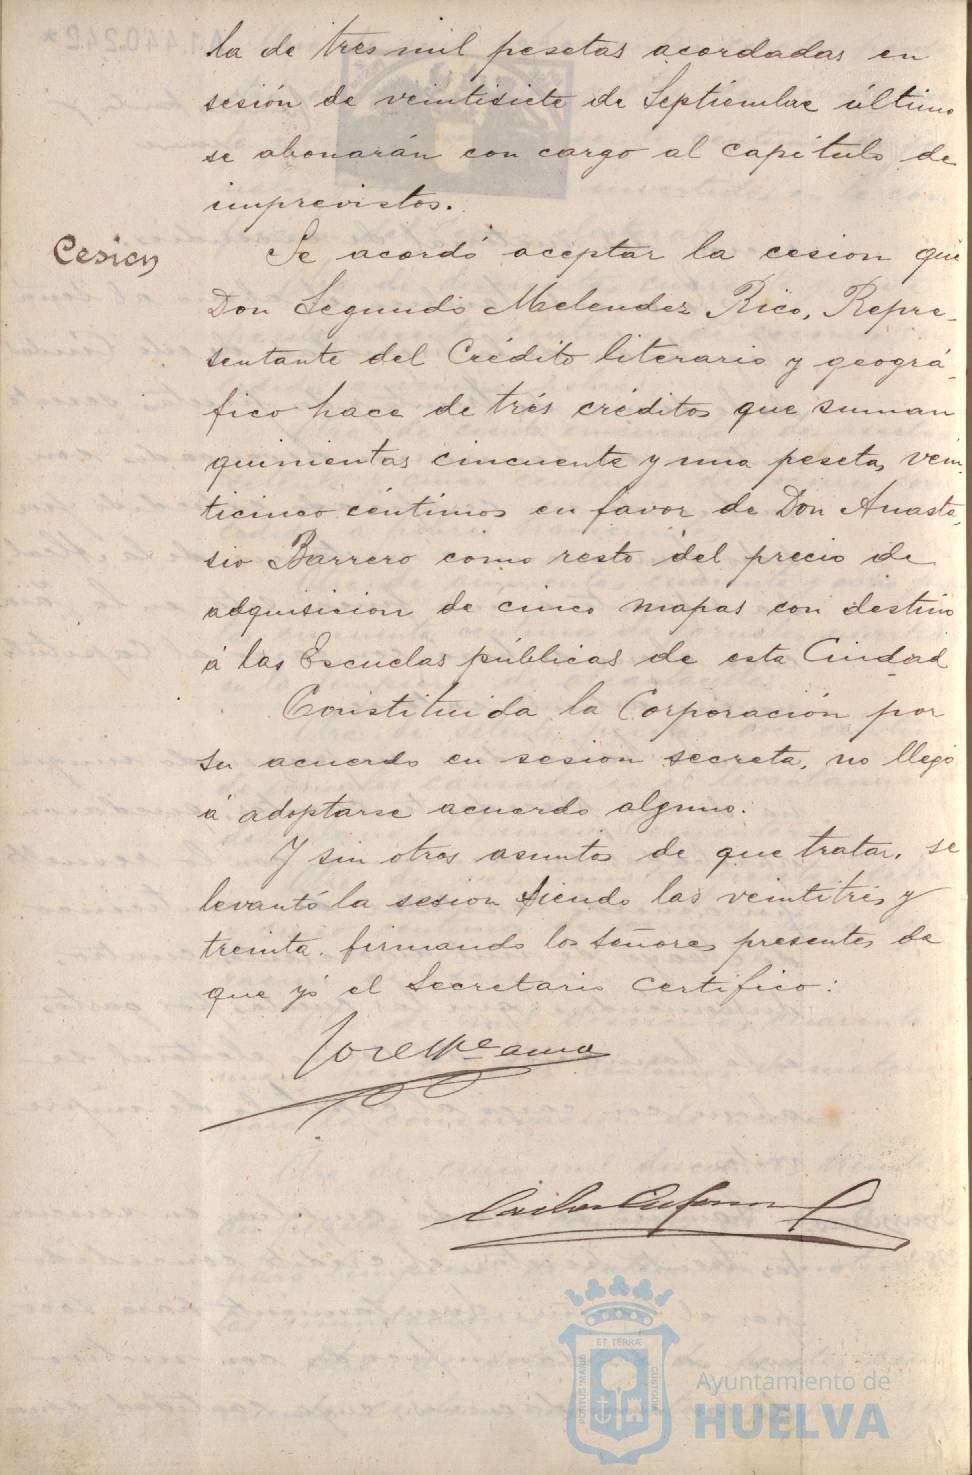 la de tres mil pesetas acordadas en
sesión de veintisiete de Septiembre último
se abonarán con cargo al capítulo de
imprevistos.
Cesion
Se acordó aceptar la cesion que
Don Segundo Melendez Rico, Repre-
sentante del Crédito literario y geográ-
fico hace de trés créditos que suman
quinientas cincuenta y una pesetas vein-
ticinco céntimos en favor de Don Anasta-
sio Barrero como resto del precio de
adquisicion de cinco mapas con destino
á las Escuelas públicas de esta Ciudad
Constituida la Corporación por
su acuerdo en sesion secreta, no llegó
á adoptarse acuerdo alguno.
Y sin otros asuntos de que tratar, se
levantó la sesion siendo las veintitrés y
treinta, firmando los Señores presentes de
que yó el Secretario certifico:
ET TERRÆ
PORTUS MARIS
CUSTODIA
Ayuntamiento de
HUELVA